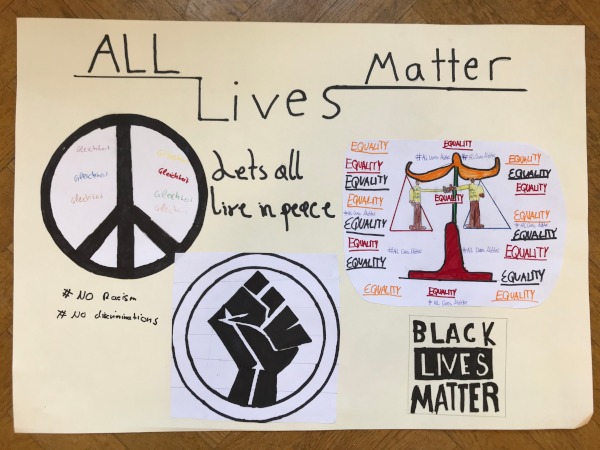 ALL
Lives
Matter
Gleichheit
Gleichheit
Gleichheit
Gleichheit
Gleichheit
Gleichheit
Lets all
live in peace
# NO Racism
# NO discriminations
EQUALITY
EQUALITY
# ALL Lives Matter
# ALL Lives Matter
EQUALITY
EQUALITY
EQUALITY
EQUALITY
EQUALITY
EQUALITY
EQUALITY
EQUALITY
# ALL Lives Matter
EQUALITY
# ALL Lives Matter
EQUALITY
EQUALITY
EQUALITY
# ALL Lives Matter
# ALL Lives Matter
EQUALITY
EQUALITY
EQUALITY
EQUALITY
EQUALITY
EQUALITY
# ALL Lives Matter
BLACK
LIVES
MATTER